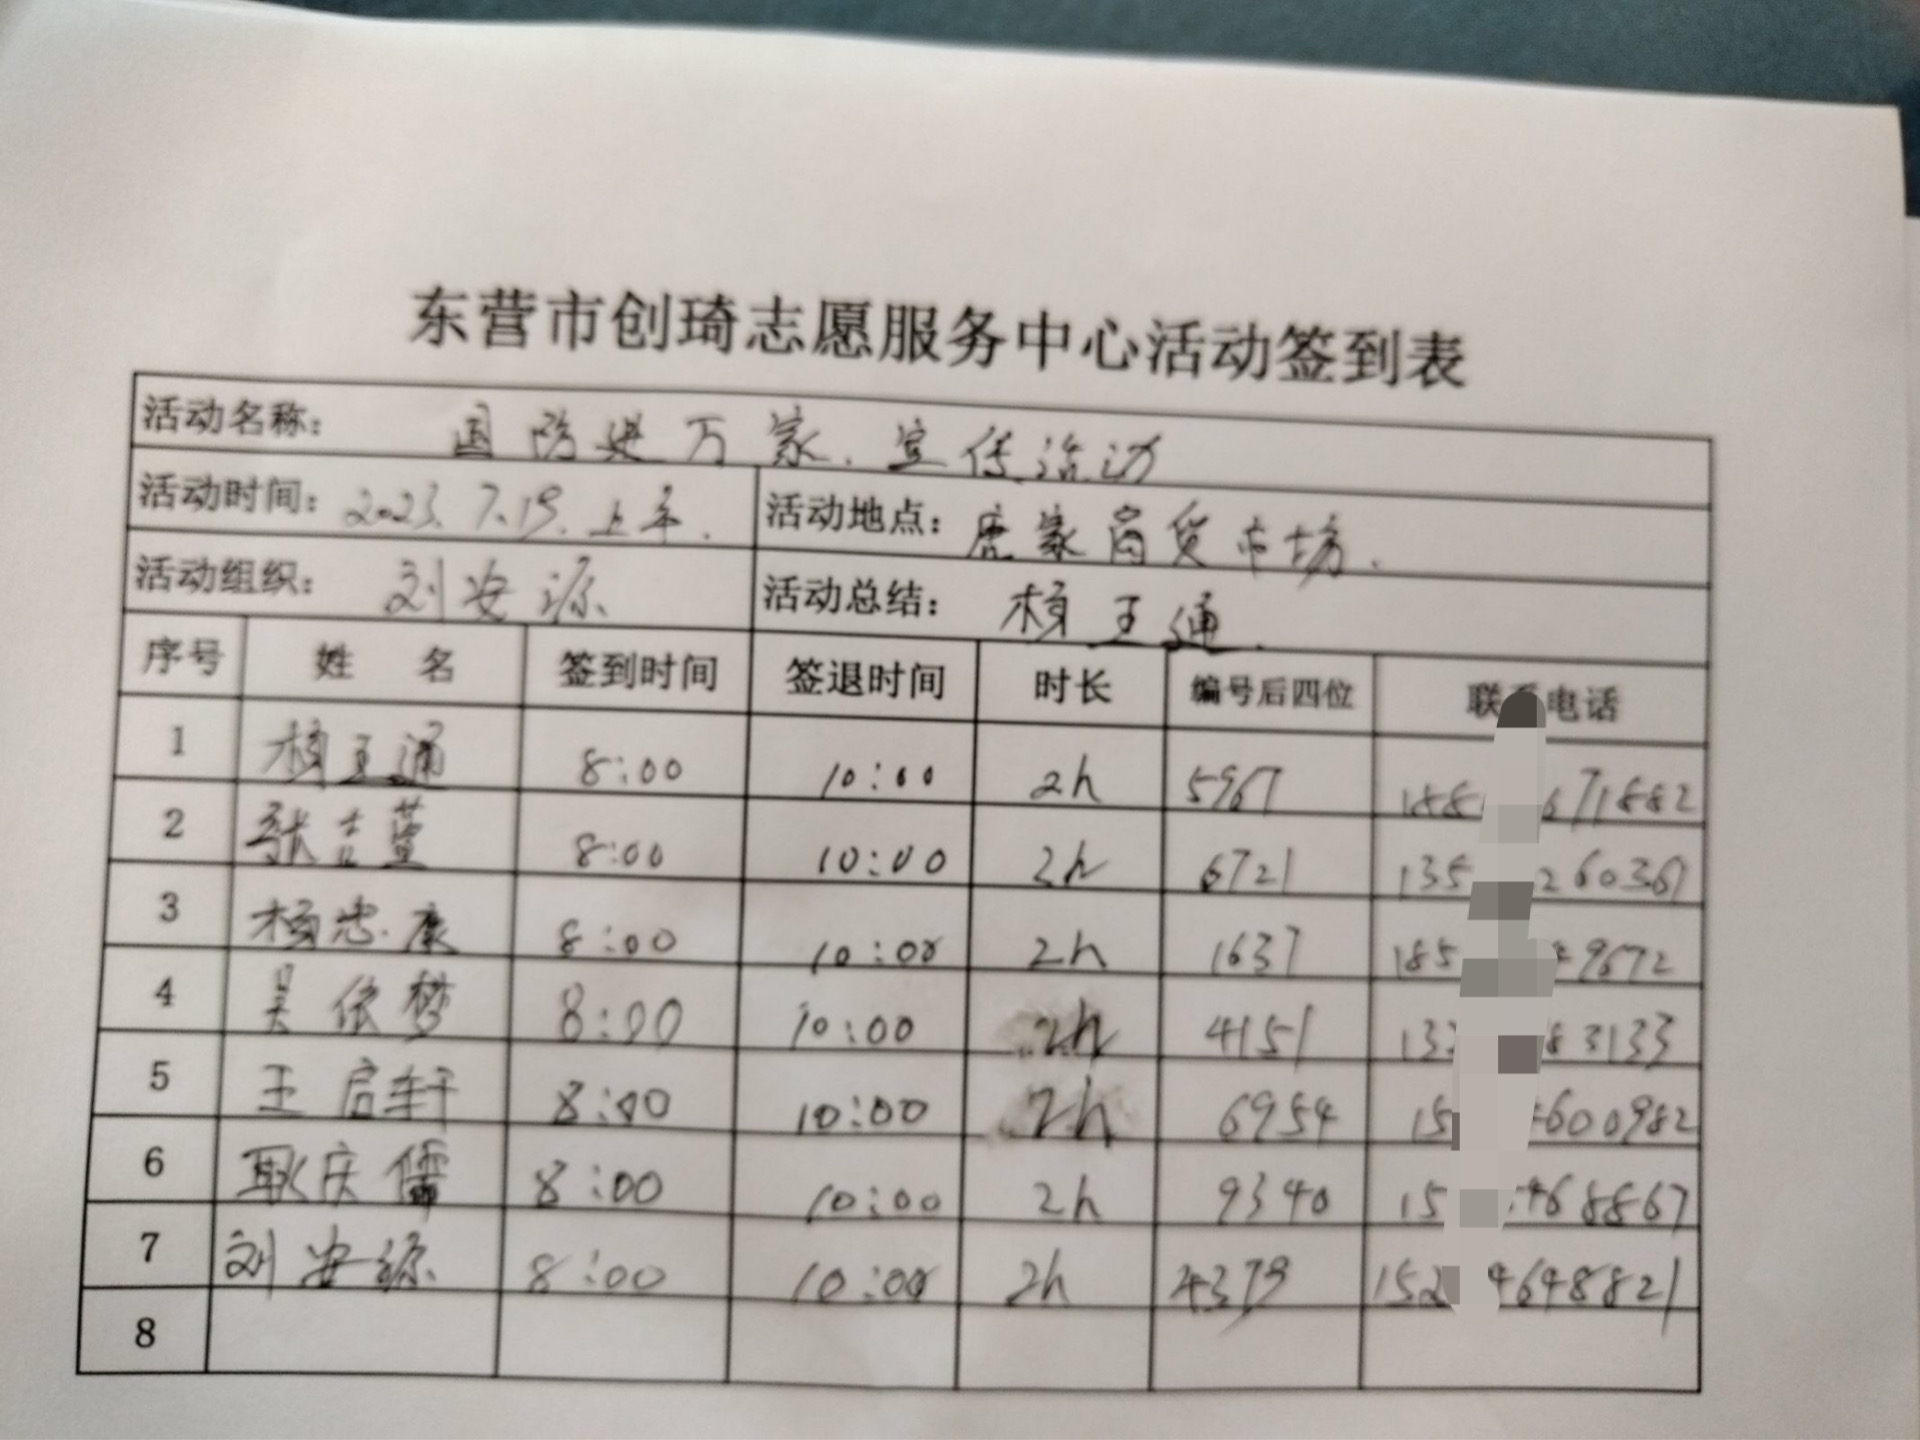 东营市创琦志愿服务中心活动签到表
活动名称: 国防进万家.宣传活动
活动时间: 2023.7.19.上午. 活动地点: 唐家商贸市场.
活动组织: 刘安源 活动总结: 杨玉通.
序号 姓 名 签到时间 签退时间 时长 编号后四位 联 电话
1 杨玉通 8:00 10:00 2h 5967 188 671882
2 张吉萱 8:00 10:00 2h 6721 135 260367
3 杨忠康 8:00 10:00 2h 1637 185 9672
4 吴依梦 8:00 10:00 2h 4151 13 83133
5 王启轩 8:00 10:00 2h 6954 15 600982
6 耿庆儒 8:00 10:00 2h 9340 15 468867
7 刘安源 8:00 10:00 2h 4379 152 4648821
8